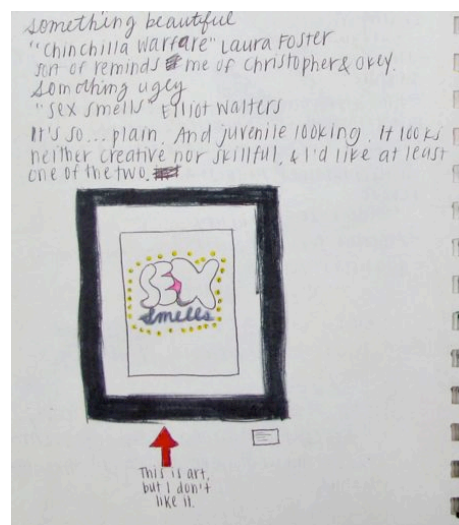 something beautiful
"Chinchilla Warfare" Laura Foster
sort of reminds me of Christopher & Okey.
Something ugly
"Sex Smells Elliot Walters
It's so... plain. And juvenile looking. It looks
neither creative nor skillful, & I'd like at least
one of the two.
SEX
Smells
This is art,
but I don't
like it.